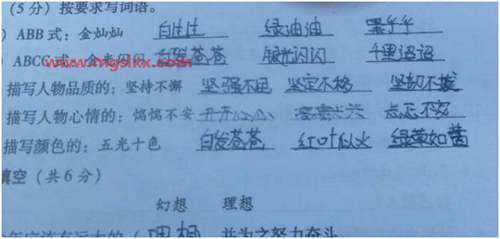 (5分)按要求写词语。
ABB式:金灿灿 白生生 绿油油 黑乎乎
ABCC式: 白发苍苍 银光闪闪 千里迢迢
www.mgslxx.com
描写人物品质的:坚持不懈 坚强不屈 坚定不移 坚韧不拔
描写人物心情的:惴惴不安
描写颜色的:五光十色 白发苍苍 红叶似火 绿草如茵
填空(共6分)
幻想 理想
理想 并为之努力奋斗